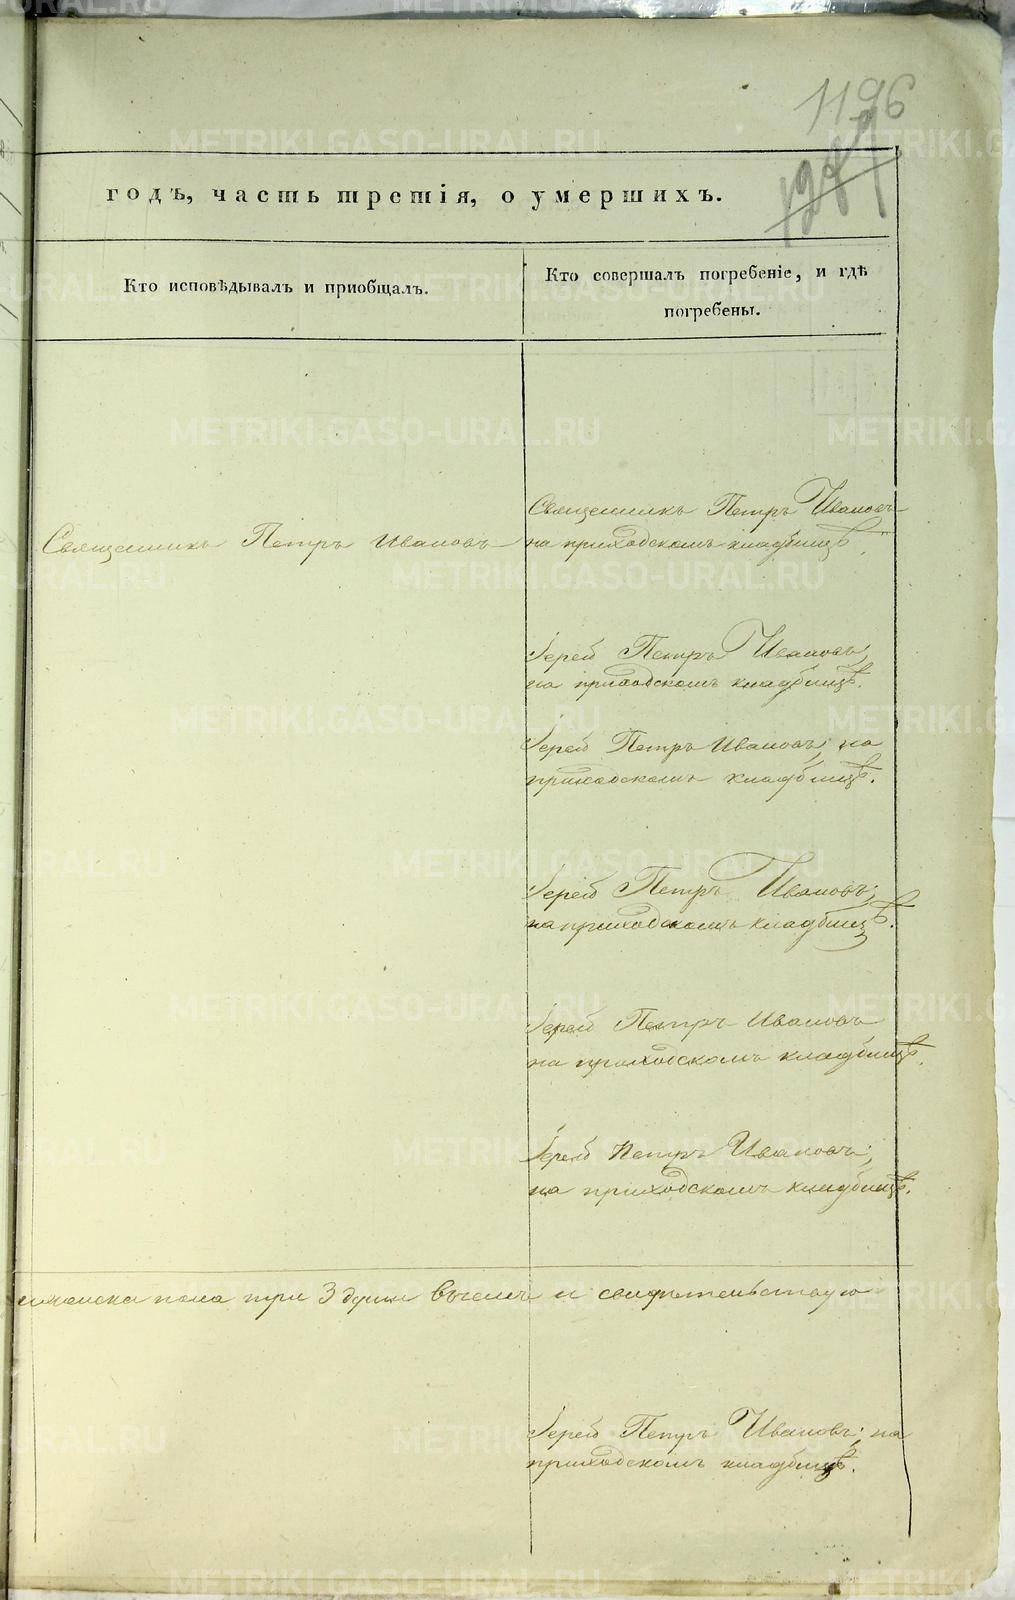 1196
1287
годъ, часть третія, о умершихъ.
Кто исповѣдывалъ и пріобщалъ.
Кто совершалъ погребеніе, и гдѣ
погребены.
Священникъ Петръ Ивановъ
Священникъ Петръ Ивановъ
на приходскомъ кладбищѣ.
Іерей Петръ Ивановъ;
на приходскомъ кладбищѣ.
Іерей Петръ Ивановъ; на
приходскомъ кладбищѣ.
Іерей Петръ Ивановъ;
на приходскомъ кладбищѣ.
Іерей Петръ Ивановъ
на приходскомъ кладбищѣ.
Іерей Петръ Ивановъ;
на приходскомъ кладбищѣ.
пола три 3 души и свидѣтельствую
Іерей Петръ Ивановъ; на
приходскомъ кладбищѣ.
METRIKI.GASO-URAL.RU